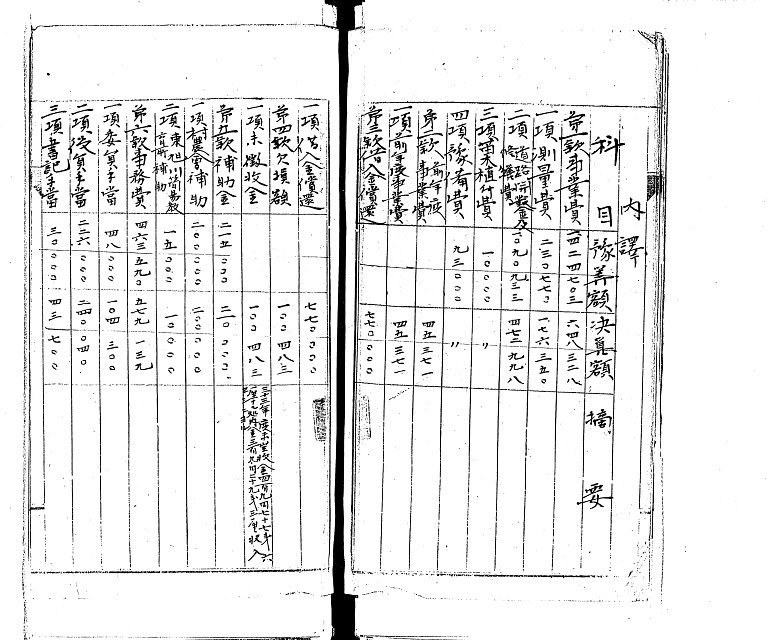 内譯
科目 豫算額 決算額 摘要
第一款事業費 一四二四七〇三 六四八三二八
一項測量費 二三〇七七〇 一七六三五〇
二項道路開鑿及修繕費 一〇九〇九三三 四七二九九八
三項苗木植付費 一〇〇〇〇 〃
四項豫備費 九三〇〇〇 〃
第二款前年度事業費 四五三七一
一項前年度事業費 四五三七一
第三款借入金償還 七七〇〇〇〇
一項借入金償還 七七〇〇〇〇
第四款欠損額 一〇〇四八三
一項未徴收金 一〇〇四八三
第五款補助金 二一五〇〇〇 二一〇〇〇〇
一項村農會補助 二〇〇〇〇〇 二〇〇〇〇〇
二項東旭川簡易教育所補助 一五〇〇〇 一〇〇〇〇
第六款事務費 四六三五九〇 五七九一三九
一項委員手當 四八〇〇〇 一〇四三〇〇
二項役員手當 二二六〇〇〇 二四〇〇四〇
三項書記手當 三〇〇〇〇 四三七〇〇